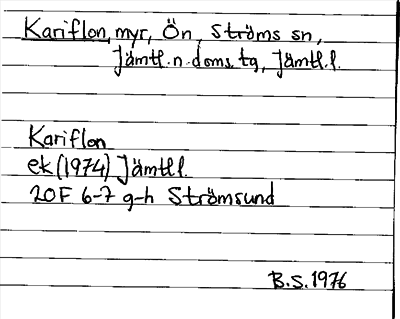 Kariflon, myr, Ön, Ströms sn,
Jämtl. n. doms. tg, Jämtl. l.
Kariflon
ek (1974) Jämtl l.
20F 6-7 g-h Strömsund
B.S. 1976